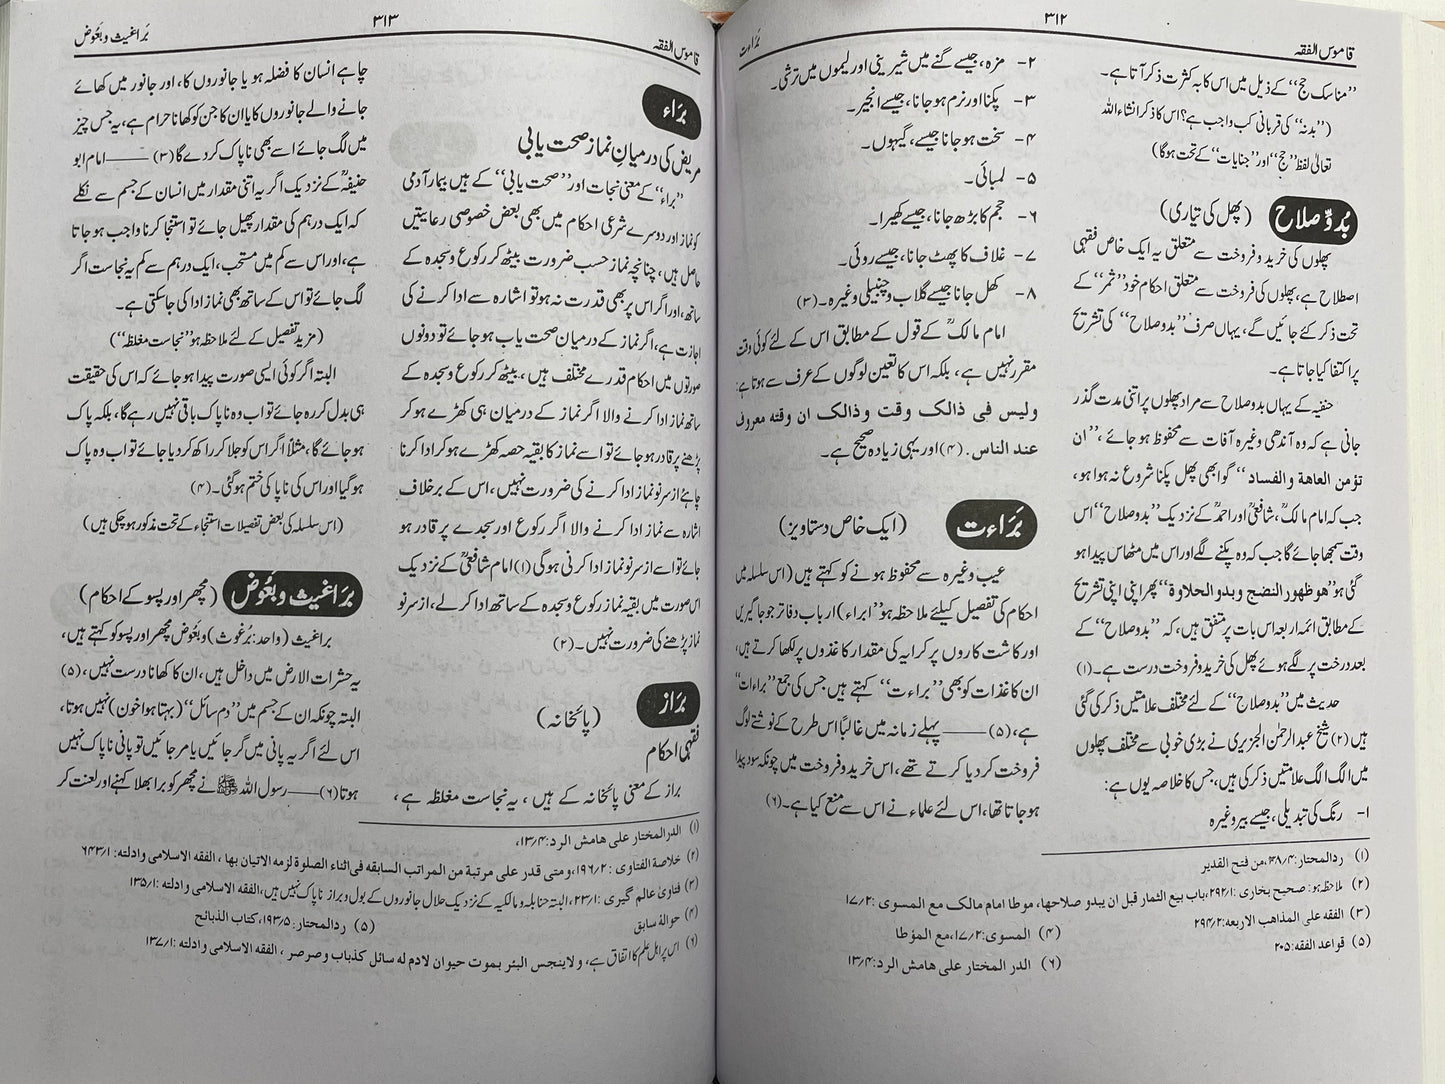 قاموس الفقہ
۳۱۲
بَرَاءت
“مناسک حج” کے ذیل میں اس کا بہ کثرت ذکر آتا ہے۔
(“بدنہ” کی قربانی کب واجب ہے؟ اس کا ذکر انشاء اللہ
تعالیٰ لفظ “حج” اور “جنایات” کے تحت ہوگا)
بُدوِّ صلاح (پھل کی تیاری)
پھلوں کی خرید و فروخت سے متعلق یہ ایک خاص فقہی
اصطلاح ہے، پھلوں کی فروخت سے متعلق احکام خود “ثمر” کے
تحت ذکر کئے جائیں گے، یہاں صرف “بدو صلاح” کی تشریح
پر اکتفا کیا جاتا ہے۔
حنفیہ کے یہاں بدو صلاح سے مراد پھلوں پر اتنی مدت گذر
جانی ہے کہ وہ آندھی وغیرہ آفات سے محفوظ ہو جائے، “ان
تؤمن العاهة والفساد” گو ابھی پھل پکنا شروع نہ ہوا ہو،
جب کہ امام مالکؒ، شافعیؒ اور احمدؒ کے نزدیک “بدو صلاح” اس
وقت سمجھا جائے گا جب کہ وہ پکنے لگے اور اس میں مٹھاس پیدا ہو
گئی ہو “هو ظهور النضج وبدو الحلاوة” پھر اپنی اپنی تشریح
کے مطابق ائمہ اربعہ اس بات پر متفق ہیں، کہ “بدو صلاح” کے
بعد درخت پر لگے ہوئے پھل کی خرید و فروخت درست ہے۔ (۱)
حدیث میں “بدو صلاح” کے لئے مختلف علامتیں ذکر کی گئی
ہیں (۲) شیخ عبدالرحمٰن الجزیری نے بڑی خوبی سے مختلف پھلوں
میں الگ الگ علامتیں ذکر کی ہیں، جس کا خلاصہ یوں ہے:
۱- رنگ کی تبدیلی، جیسے بیر وغیرہ
۲- مزہ، جیسے گنے میں شیرینی اور لیموں میں ترشی۔
۳- پکنا اور نرم ہو جانا، جیسے انجیر۔
۴- سخت ہو جانا جیسے، گیہوں۔
۵- لمبائی۔
۶- حجم کا بڑھ جانا، جیسے کھیرا۔
۷- غلاف کا پھٹ جانا، جیسے روئی۔
۸- کھل جانا جیسے گلاب و چنبیلی وغیرہ۔ (۳)
امام مالکؒ کے قول کے مطابق اس کے لئے کوئی وقت
مقرر نہیں ہے، بلکہ اس کا تعین لوگوں کے عرف سے ہوتا ہے:
وليس فى ذالک وقت وذالک ان وقته معروف
عند الناس. (۴) اور یہی زیادہ صحیح ہے۔
بَرَاءت (ایک خاص دستاویز)
عیب وغیرہ سے محفوظ ہونے کو کہتے ہیں (اس سلسلہ میں
احکام کی تفصیل کیلئے ملاحظہ ہو “ابراء”) ارباب دفاتر جو جاگیریں
اور کاشت کاروں پر کرایہ کی مقدار کاغذوں پر لکھا کرتے ہیں،
ان کاغذات کو بھی “براءت” کہتے ہیں جس کی جمع “براءات”
ہے، (۵) —— پہلے زمانہ میں غالباً اس طرح کے نوشتے لوگ
فروخت کر دیا کرتے تھے، اس خرید و فروخت میں چونکہ سود پیدا
ہو جاتا تھا، اس لئے علماء نے اس سے منع کیا ہے۔ (۶)
(۱) ردالمحتار: ۴/۳۸، من فتح القدیر
(۲) ملاحظہ ہو: صحیح بخاری :۱/۲۹۲، باب بیع الثمار قبل ان یبدو صلاحها، موطا امام مالک مع المسوی :۲/۱۷
(۳) الفقه على المذاهب الاربعه:۲/۲۹۴
(۴) المسوی:۲/۱۷، مع المؤطا
(۵) قواعد الفقه: ۲۰۵
(۶) الدر المختار على هامش الرد:۴/۱۳
قاموس الفقہ
۳۱۳
بَراغیث و بَعُوض
بَرَاء
مریض کی درمیانِ نماز صحت یابی
“براء” کے معنی نجات اور “صحت یابی” کے ہیں بیمار آدمی
کو نماز اور دوسرے شرعی احکام میں بھی بعض خصوصی رعایتیں
حاصل ہیں، چنانچہ نماز حسب ضرورت بیٹھ کر رکوع و سجدہ کے
ساتھ، اور اگر اس پر بھی قدرت نہ ہو تو اشارہ سے ادا کرنے کی
اجازت ہے، اگر نماز کے درمیان صحت یاب ہو جائے تو دونوں
صورتوں میں احکام قدرے مختلف ہیں، بیٹھ کر رکوع و سجدہ کے
ساتھ نماز ادا کرنے والا اگر نماز کے درمیان ہی کھڑے ہو کر
پڑھنے پر قادر ہو جائے تو اسے نماز کا بقیہ حصہ کھڑے ہو کر ادا کرنا
چاہئے از سر نو نماز ادا کرنے کی ضرورت نہیں، اس کے برخلاف
اشارہ سے نماز ادا کرنے والا اگر رکوع اور سجدے پر قادر ہو
جائے تو اسے از سر نو نماز ادا کرنی ہوگی (۱) امام شافعیؒ کے نزدیک
اس صورت میں بقیہ نماز رکوع و سجدہ کے ساتھ ادا کر لے، از سر نو
نماز پڑھنے کی ضرورت نہیں۔ (۲)
بَرَاز (پائخانہ)
فقہی احکام
براز کے معنی پائخانہ کے ہیں، یہ نجاست مغلظہ ہے،
چاہے انسان کا فضلہ ہو یا جانوروں کا، اور جانور میں کھائے
جانے والے جانوروں کا یا ان کا جن کو کھانا حرام ہے، یہ جس چیز
میں لگ جائے اسے بھی ناپاک کر دے گا (۳) —— امام ابو
حنیفہؒ کے نزدیک اگر یہ اتنی مقدار میں انسان کے جسم سے نکلے
کہ ایک درہم کی مقدار پھیل جائے تو استنجا کرنا واجب ہو جاتا
ہے، اور اس سے کم میں مستحب، ایک درہم سے کم یہ نجاست اگر
لگ جائے تو اس کے ساتھ بھی نماز ادا کی جا سکتی ہے۔
(مزید تفصیل کے لئے ملاحظہ ہو “نجاست مغلظہ”)
البتہ اگر کوئی ایسی صورت پیدا ہو جائے کہ اس کی حقیقت
ہی بدل کر رہ جائے تو اب وہ ناپاک باقی نہیں رہے گا، بلکہ پاک
ہو جائے گا، مثلاً اگر اس کو جلا کر راکھ کر دیا جائے تو اب وہ پاک
ہو گیا اور اس کی ناپاکی ختم ہو گئی۔ (۴)
(اس سلسلہ کی بعض تفصیلات استنجاء کے تحت مذکور ہو چکی ہیں)
بَرَاغیث و بَعُوض (مچھر اور پسو کے احکام)
براغیث (واحد: بُرغوث) و بَعُوض مچھر اور پسو کو کہتے ہیں،
یہ حشرات الارض میں داخل ہیں، ان کا کھانا درست نہیں، (۵)
البتہ چونکہ ان کے جسم میں “دم سائل” (بہتا ہوا خون) نہیں ہوتا،
اس لئے اگر یہ پانی میں گر جائیں یا مر جائیں تو پانی ناپاک نہیں
ہوتا (۶) —— رسول اللہ ﷺ نے مچھر کو برا بھلا کہنے اور لعنت کر
(۱) الدر المختار على هامش الرد:۴/۱۳،
(۲) خلاصة الفتاوى :۲/۱۹۶، ومتى قدر على مرتبة من المراتب السابقه فى اثناء الصلوة لزمه الاتيان بها، الفقه الاسلامى وادلته: ۱/۶۴۳
(۳) فتاوىٰ عالم گیری :۱/۲۳، البتہ حنابلہ و مالکیہ کے نزدیک حلال جانوروں کے بول و براز ناپاک نہیں ہیں، الفقه الاسلامى وادلته :۱/۱۳۵
(۴) حوالۂ سابق
(۵) ردالمحتار: ۵/۱۹۳، کتاب الذبائح
(۶) اس پر اہل علم کا اتفاق ہے، ولاينجس البئر بموت حيوان لادم له سائل كذباب وصرصر، الفقه الاسلامى وادلته :۱/۱۳۷